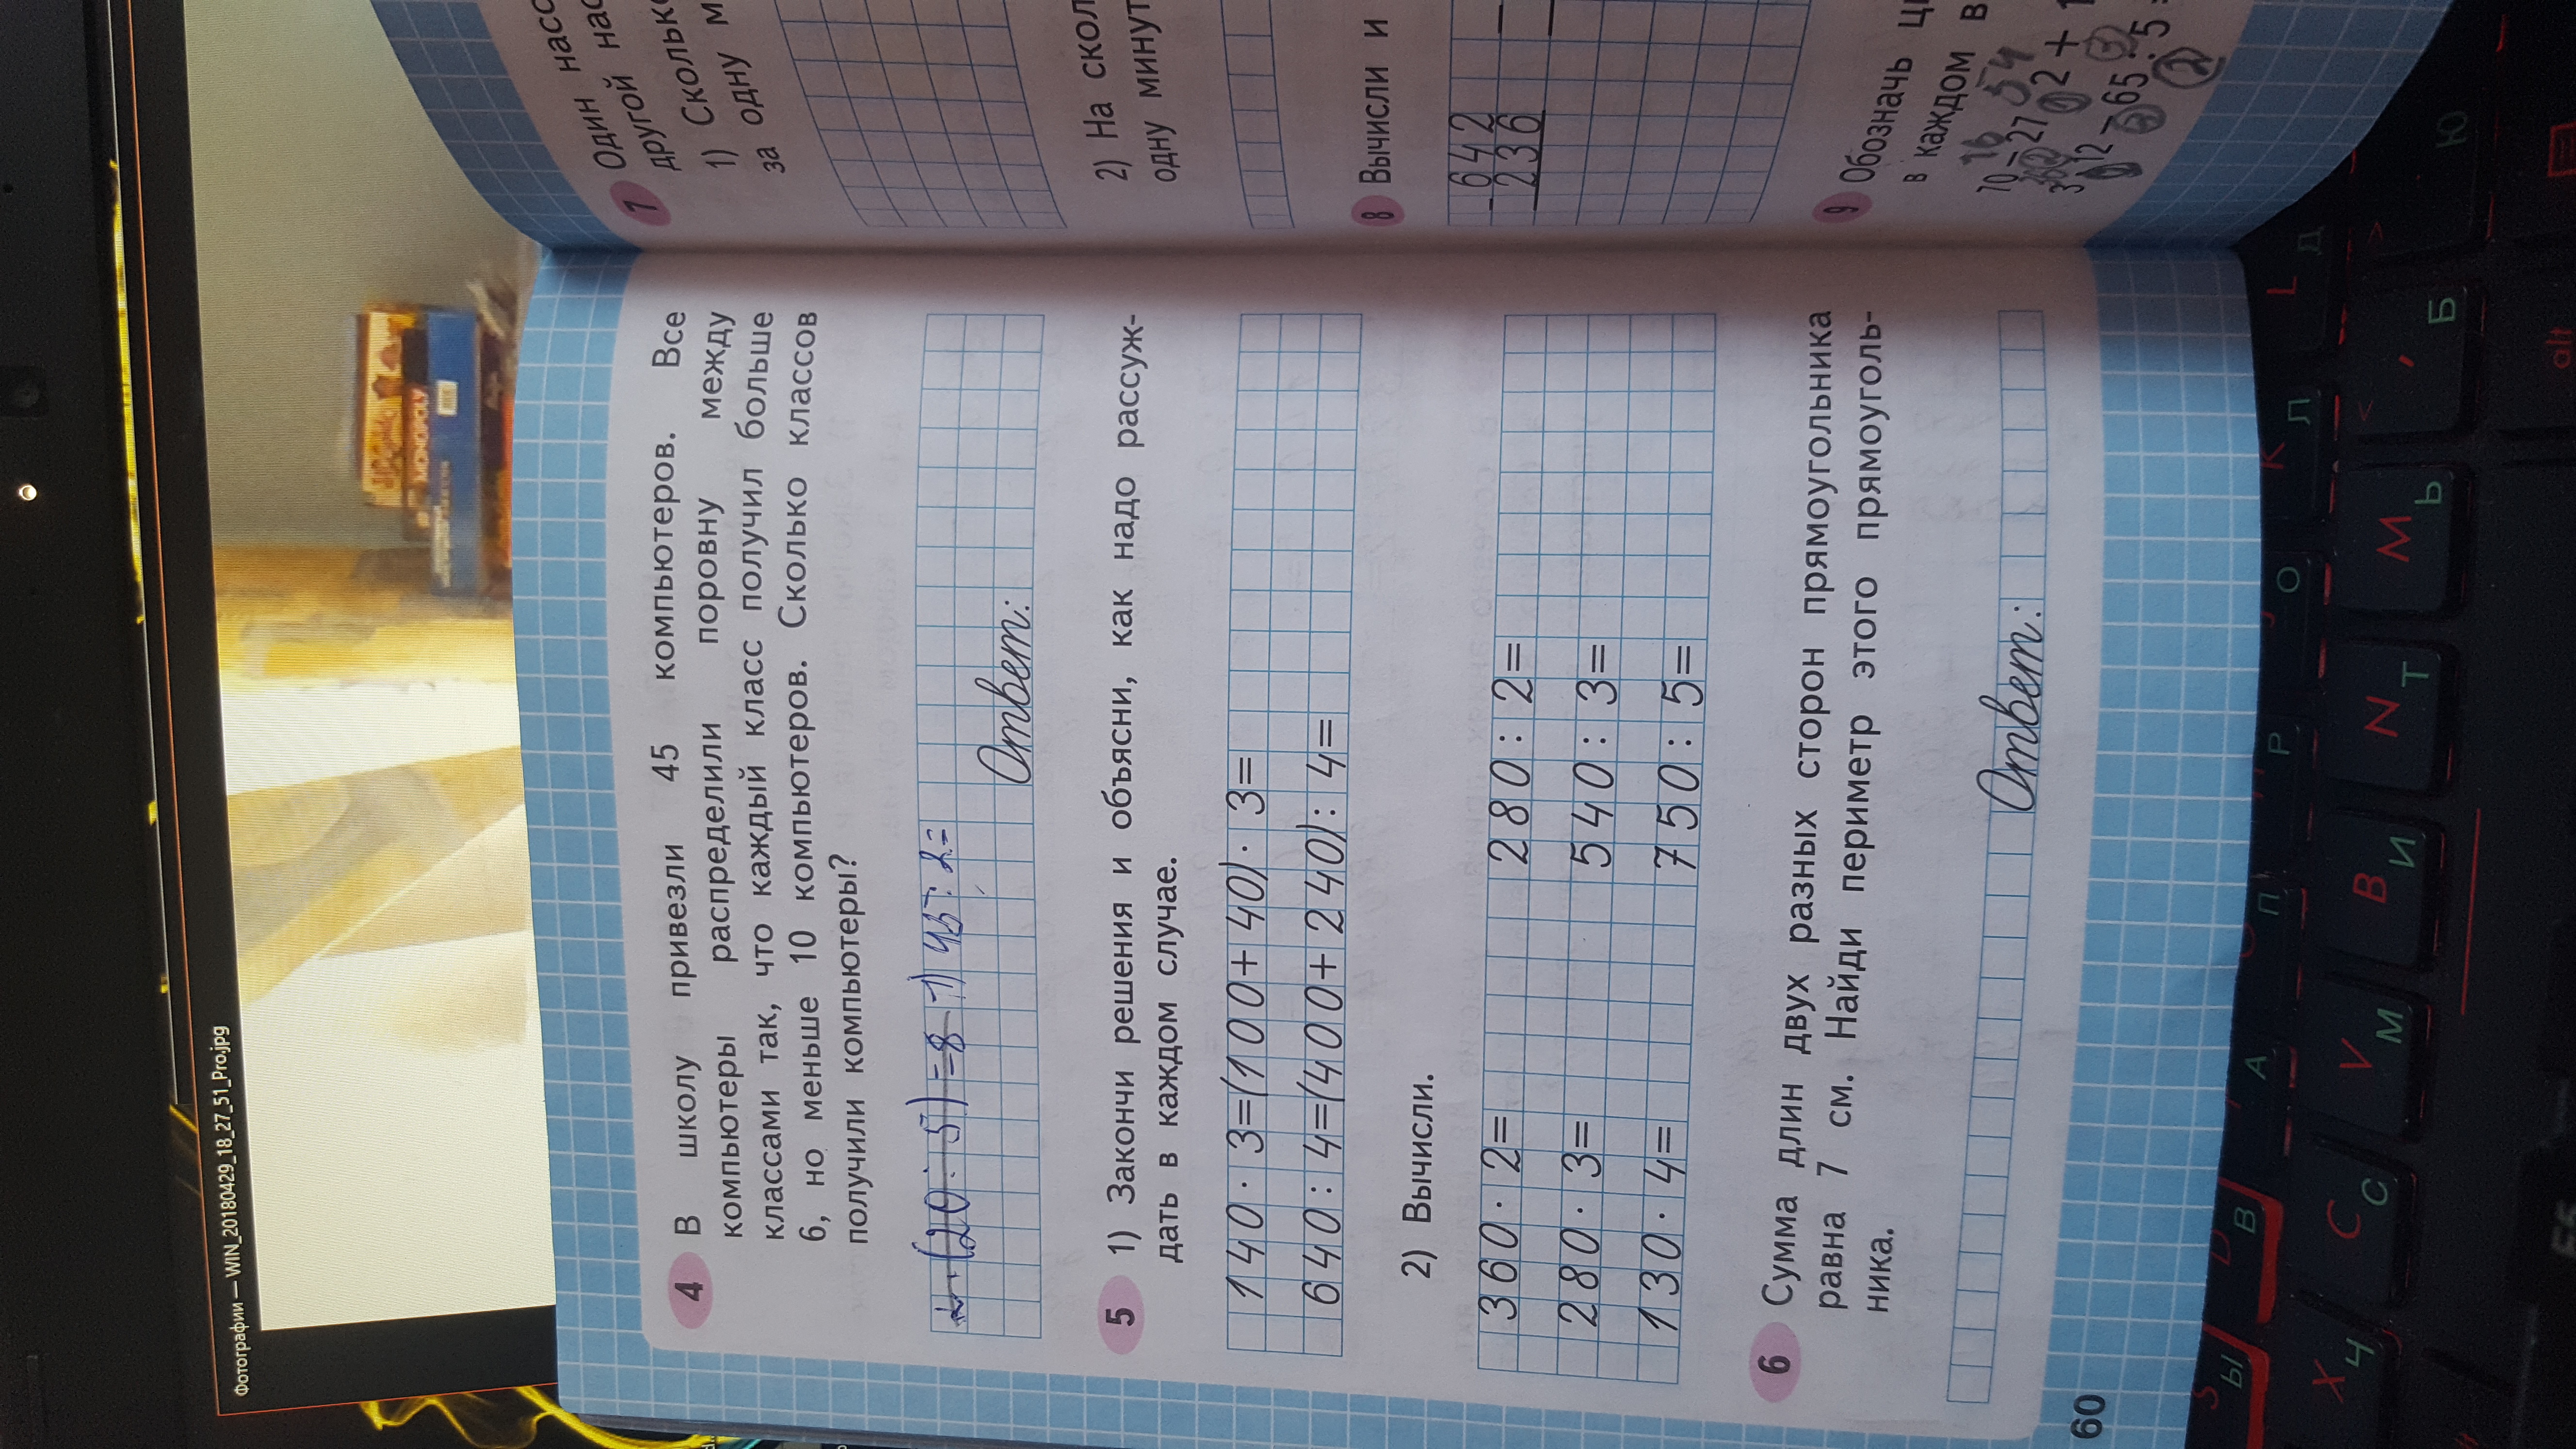 Фотографии — WIN_20180429_18_27_51_Pro.jpg
MONOPOLY
4 В школу привезли 45 компьютеров. Все
компьютеры распределили поровну между
классами так, что каждый класс получил больше
6, но меньше 10 компьютеров. Сколько классов
получили компьютеры?
(20:5)=8 1) 45:2=
Ответ:
5 1) Закончи решения и объясни, как надо рассуж-
дать в каждом случае.
140·3=(100+40)·3=
640:4=(400+240):4=
2) Вычисли.
360·2= 280:2=
280·3= 540:3=
130·4= 750:5=
6 Сумма длин двух разных сторон прямоугольника
равна 7 см. Найди периметр этого прямоуголь-
ника.
Ответ:
60
7 Один насо
другой нас
1) Скольк
за одну м
2) На скол
одну минут
8 Вычисли и
-642
236
9 Обозначь ц
в каждом в
16 54
70-27
2+1
312-65:5
S Ы
D В
А
П
Р
J О
K Л
L Д
X Ч
C С
V М
B И
N Т
M Ь
, Б
Ю
alt